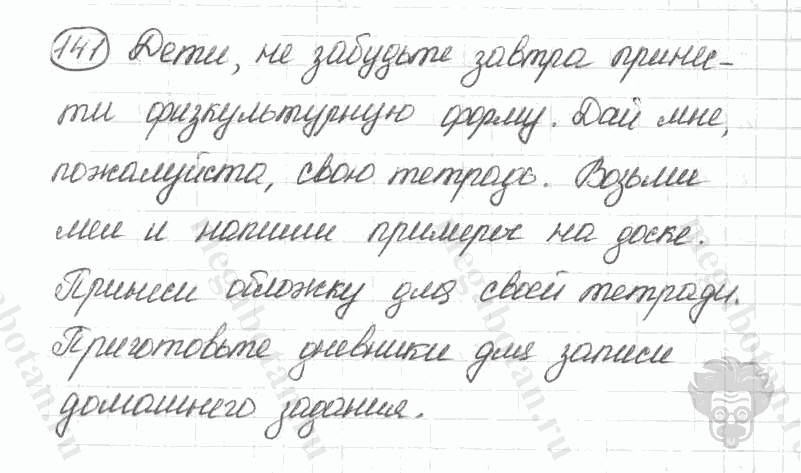 141 Дети, не забудьте завтра принес-
ти физкультурную форму. Дай мне,
пожалуйста, свою тетрадь. Возьми
мел и напиши примеры на доске.
Принеси обложку для своей тетради.
Приготовьте дневники для записи
домашнего задания.
megabotan.ru
megabotan.ru
megabotan.ru
megabotan.ru